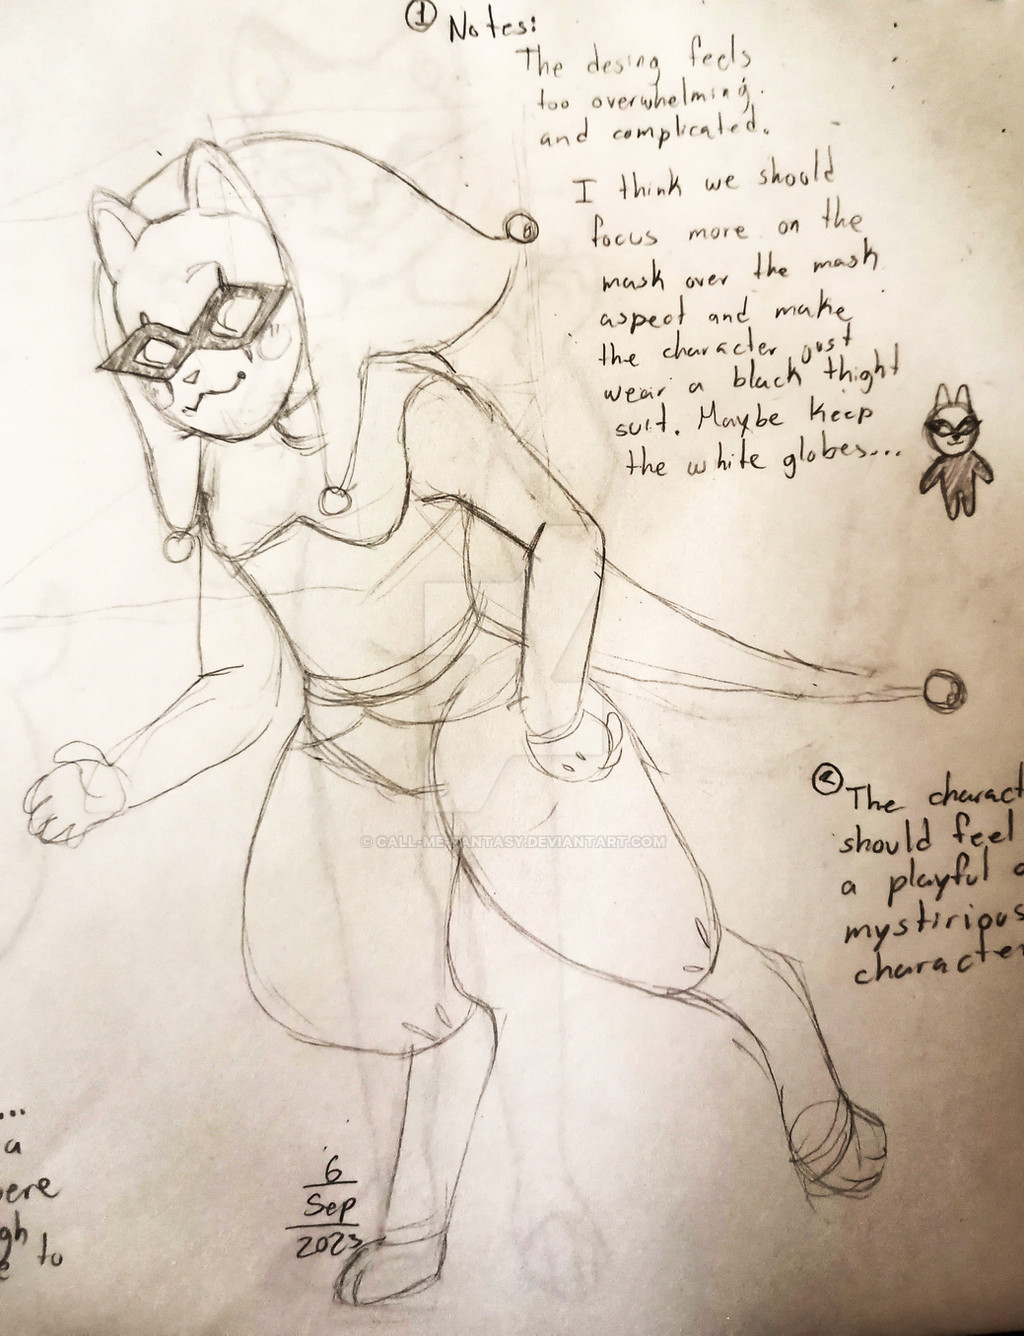 1 Notes:
The desing feels
too overwhelming.
and complicated.
I think we should
focus more on the
mask over the mask
aspect and make
the character just
wear a black thight
suit. Maybe keep
the white globes...
2 The charact
should feel
a playful
mystirious
character
...
a
ere
gh
e to
6
Sep
2023
© CALL-ME-FANTASY.DEVIANTART.COM